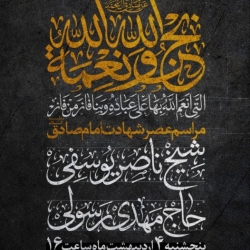 نحن والله نعمة الله
التی أنعم الله بها علی عباده و بنا فاز من فاز
مراسم عصر شهادت امام صادق
شیخ ناصر یوسفی
حاج مهدی رسولی
پنجشنبه ۴ اردیبهشت ماه ساعت ۱۶